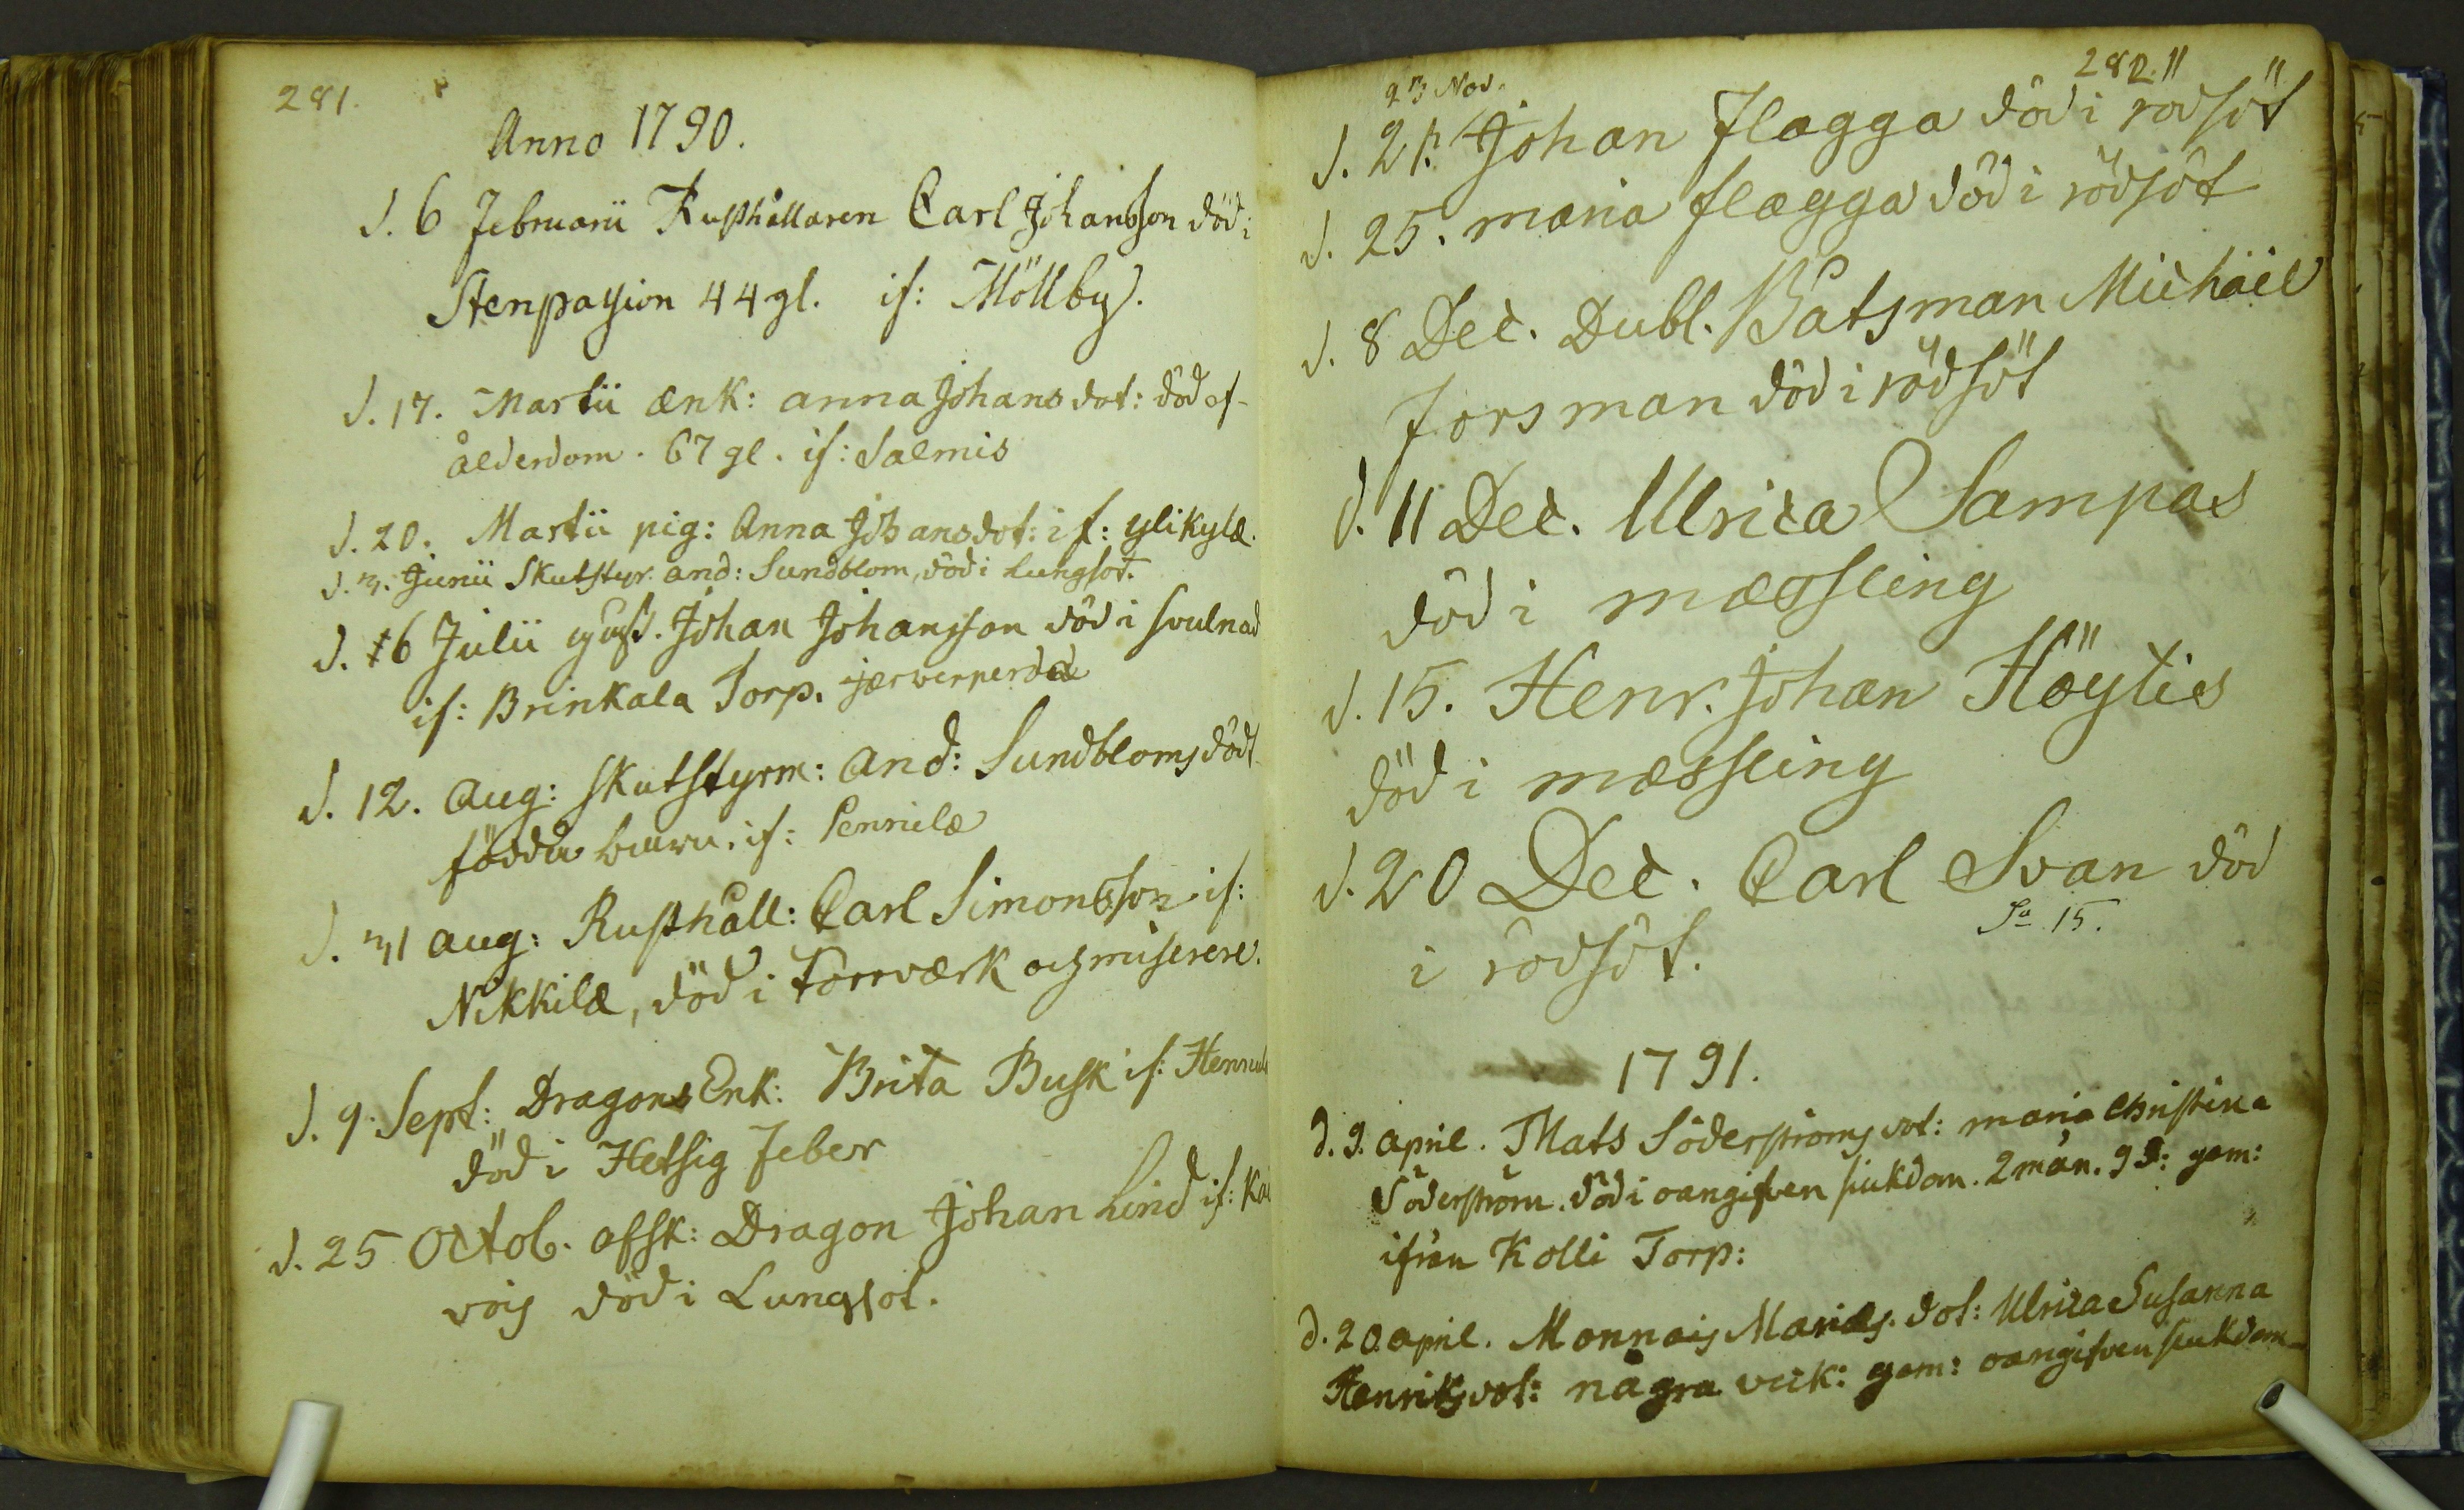 281.
Anno 1790.
d. 6 Februarii Rusthållaren Carl Johansson död i
Stenpassion 44 gl. if: Möllby.
d. 17. Martii ænk: anna Johans dot: död af
ålderdom. 67 gl. if: Salmis
d. 20. Martii pig: Anna Johansdot: if: ylikylæ.
d. 3. Junii Skutstyr. and: Sundblom, död i Lungsot.
d. 16 Julii Johan Johansson död i svulnad
if: Brinkala Torp.
d. 12. Aug: Skutstyrm: And: Sundbloms död
födda barn. if: Pennilæ
d. 31 aug: Rusthåll: Carl Simonsson if:
Nikkilæ, död i Torrværk och miserere.
d. 9. Sept: Dragons Enk: Brita Busk if:
död i Hetsig Feber
d. 25 Octob. afsk: Dragon Johan Lind if:
död i Lungsot.
282.
23 Nov.
d. 21. Johan Flagga död i rödsöt
d. 25. maria flagga död i rödsöt
d. 8 Dec. Dubl. Båtsman Michäel
Forsman död i rödsöt
d. 11 Dec. Ulrica Sampas
död i mæssling
d. 15. Henr. Johan Höytis
död i mæssling
d. 20 Dec. Carl Svan död
i rödsöt.
Sa 15.
1791.
d. 9. april. Mats Söderströms dot: maria Christina
Söderström. död i oangifven siukdom. 2 mån. 9 d: gam:
ifrån Kolli Torp:
d. 20. april. Monnais Marias. dot: Ulrica Susanna
Henriksdot: några veck: gam: oangifven siukdom